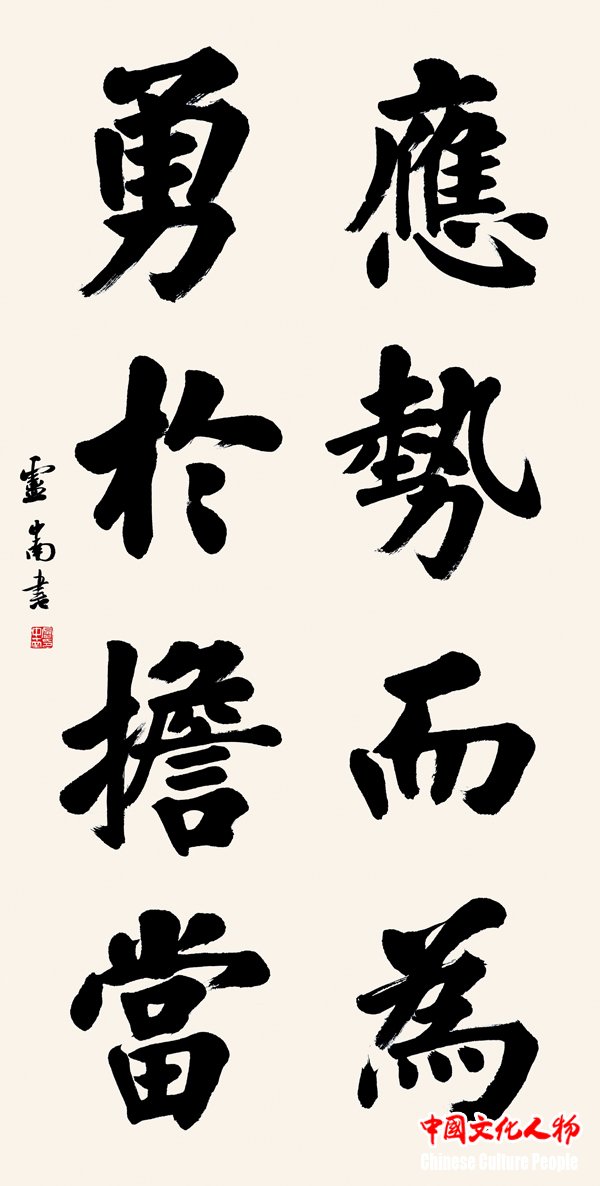 應勢而為
勇於擔當
靈嵛書
中國文化人物
Chinese Culture People